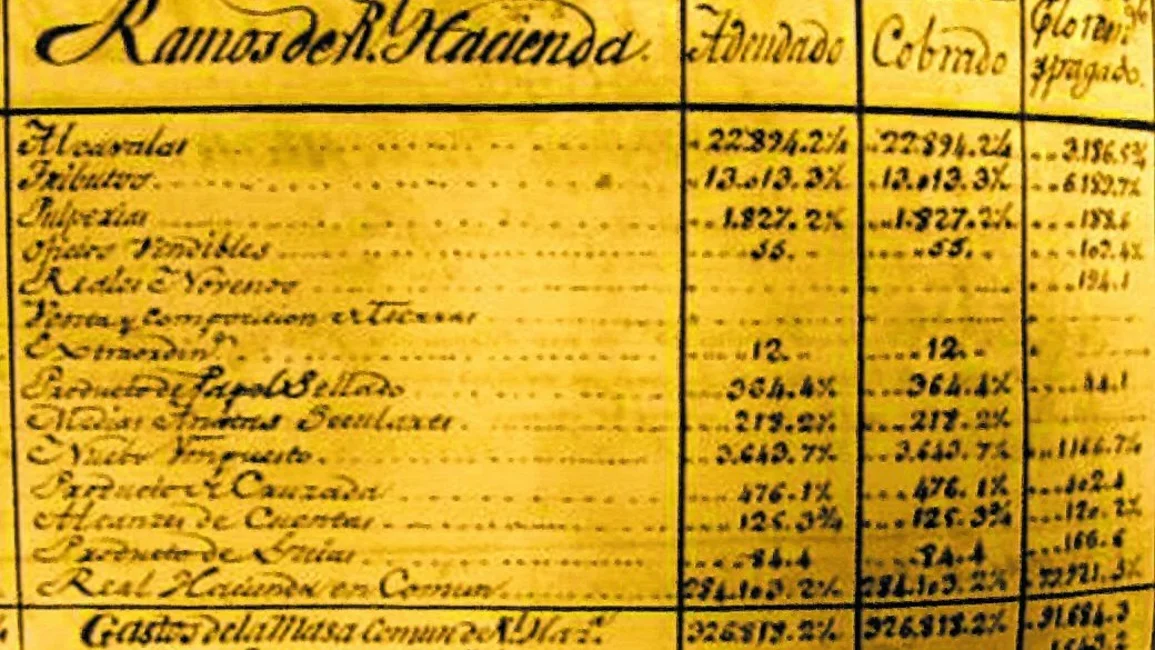 Ramos de Rl. Hacienda. Adeudado Cobrado
y pagado.
Alcavalas 22.894.2¼ 22.894.2¼ 3.186.5¾
Tributos 13.013.3½ 13.013.3½ 6.189.7½
Pulperias 1.827.2½ 1.827.2½ 188.6
Oficios Vendibles 55. 55. 102.4½
Reales Novenos 194.1
Venta y Composicion de Tierras
Extraordin.o 12. 12.
Producto de Papel Sellado 364.4½ 364.4½ 44.1
Medias Anatas Seculares 218.2½ 218.2½
Nuebo Ympuesto 3.643.7½ 3.643.7½ 1166.7½
Producto de Cruzada 476.1½ 476.1½
Alcanzes de Cuentas 125.3¾ 125.3¾ 120.2½
Producto de 84.4 84.4 166.6
Real Hacienda en Comun 284.103.2½ 284.103.2½
Gastos de la Masa Comun de Rl. Haz.da 326.818.2½ 326.818.2½ 91.684.3